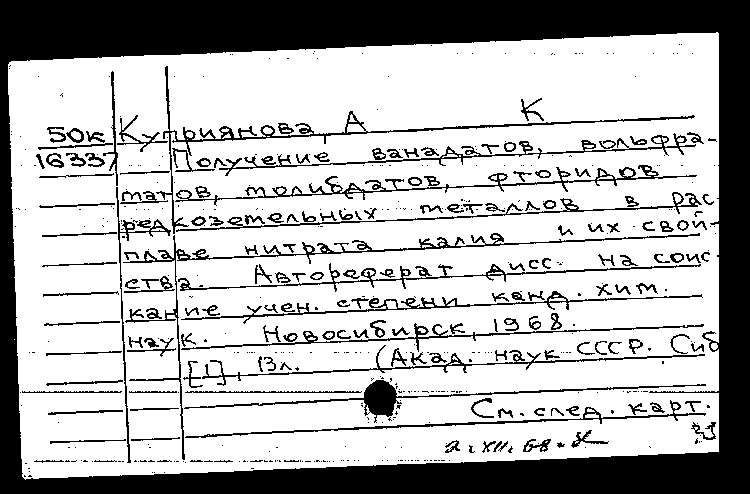 К
50к Куприянова, А
16337 Получение ванадатов, вольфра-
матов, молибдатов, фторидов
редкоземельных металлов в рас-
плаве нитрата калия и их свой-
ства. Автореферат дисс. на соис-
кание учен. степени канд. хим.
наук. Новосибирск, 1968.
[1], 13л. (Акад. наук СССР. Сиб
См. след. карт.
2.XII.68.